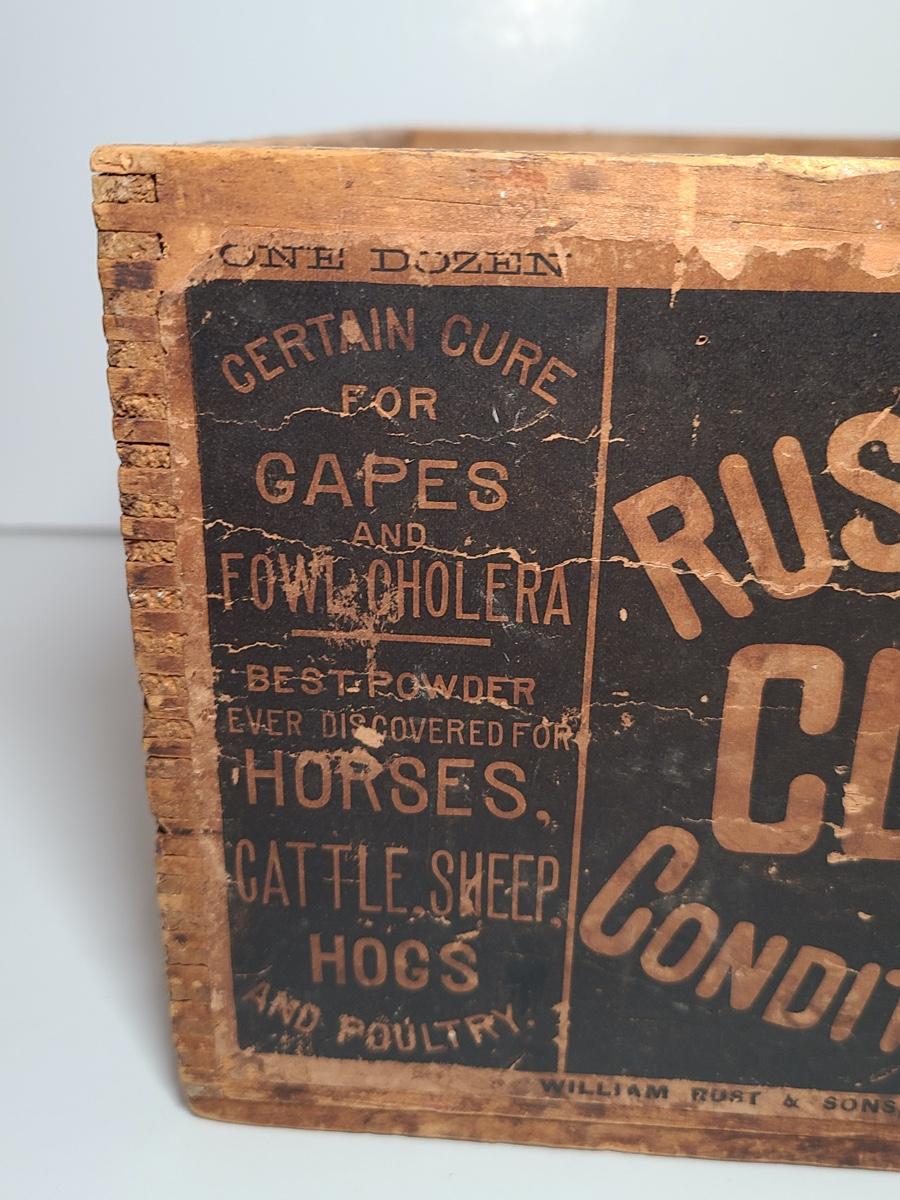 ONE DOZEN
CERTAIN CURE
FOR
GAPES
AND
FOWL CHOLERA
BEST POWDER
EVER DISCOVERED FOR
HORSES,
CATTLE, SHEEP,
HOGS
AND POULTRY.
RUS
C
CONDIT
WILLIAM RUST & SONS,